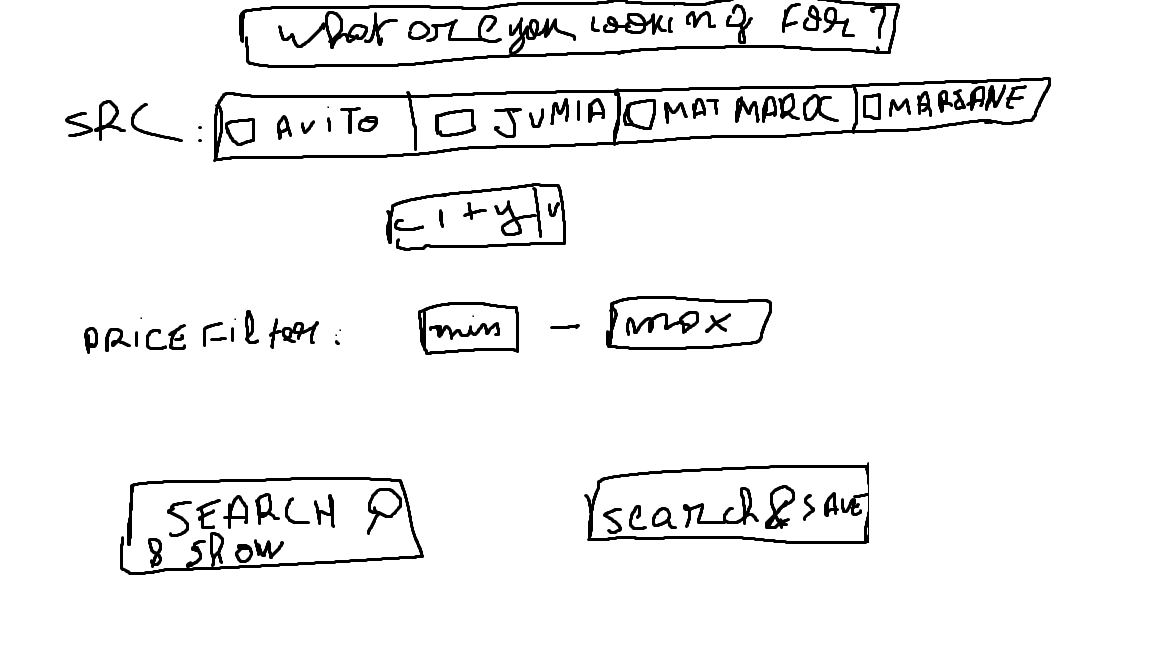 What are you looking for?
SRC : AViTo JUMIA MAT MAROC MARJANE
city v
PRICE Filter : min - max
SEARCH
& show
search & SAVE